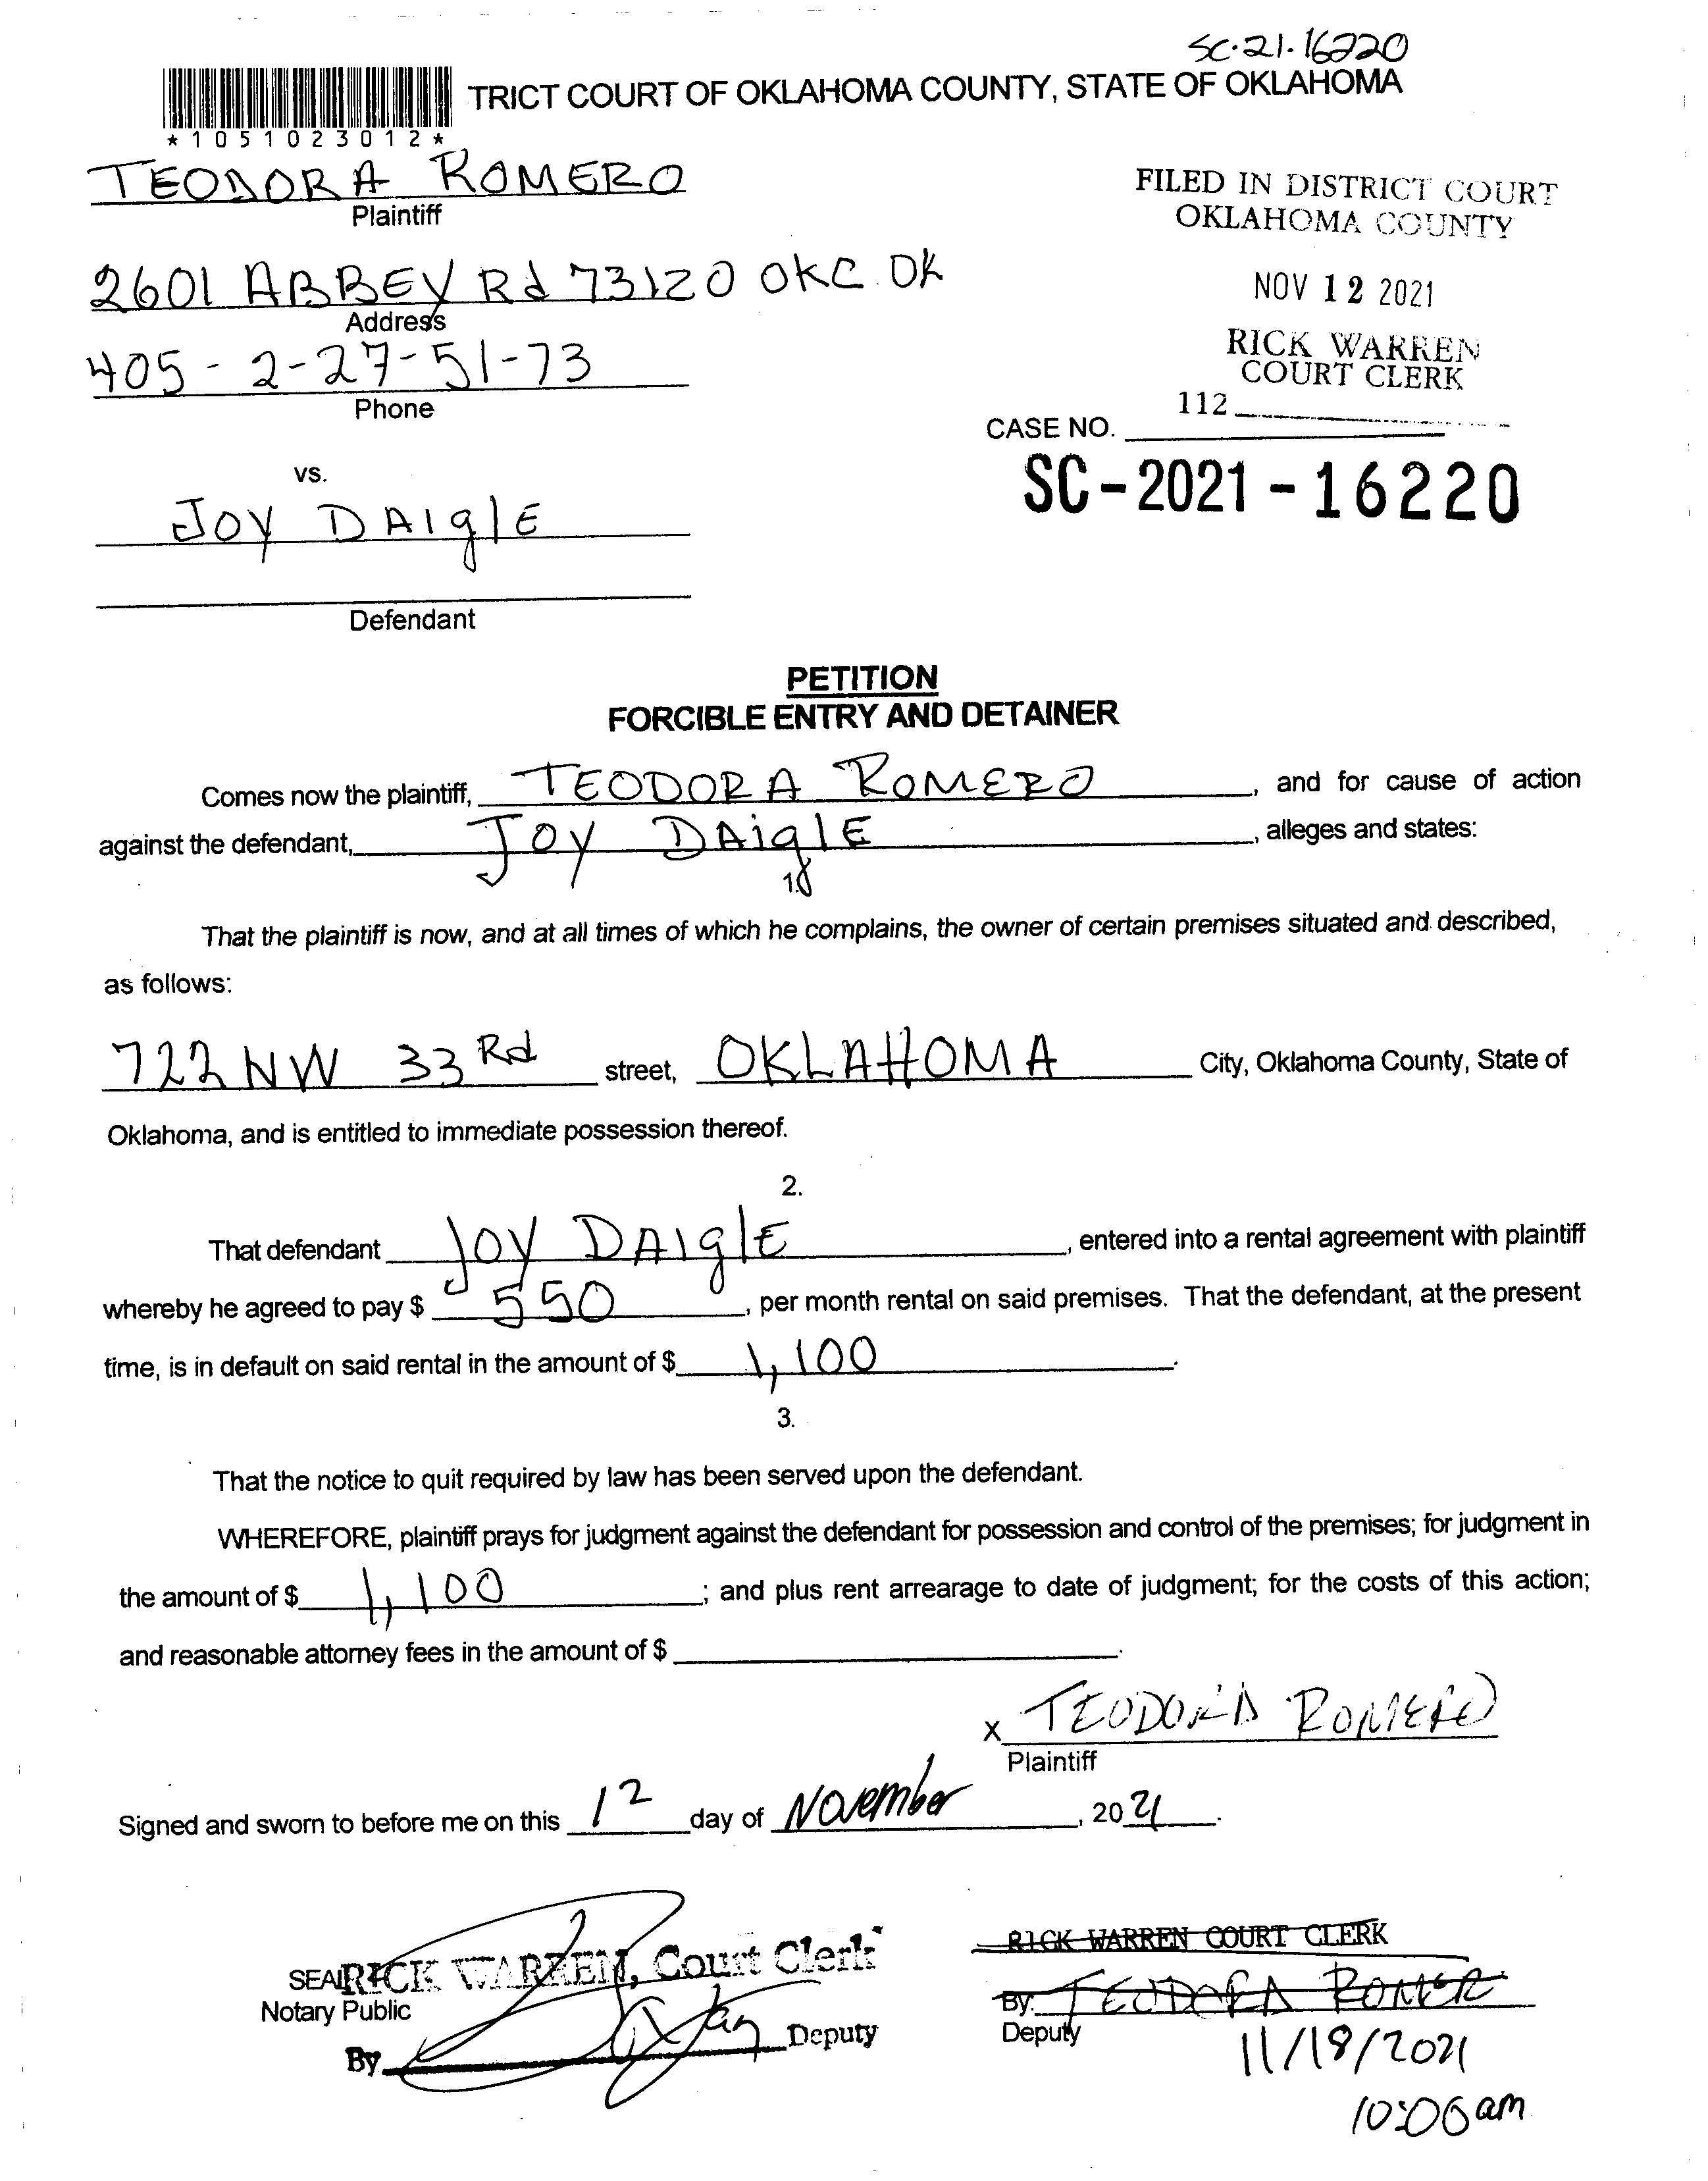 SC-21-16220
TRICT COURT OF OKLAHOMA COUNTY, STATE OF OKLAHOMA
*1051023012*
TEODORA ROMERO
Plaintiff
FILED IN DISTRICT COURT
OKLAHOMA COUNTY
2601 ABBEY Rd 73120 OKC OK
Address
NOV 12 2021
RICK WARREN
COURT CLERK
405-2-27-51-73
Phone
112
CASE NO.
SC-2021-16220
vs.
JOY DAIglE
Defendant
PETITION
FORCIBLE ENTRY AND DETAINER
Comes now the plaintiff, TEODORA ROMERO, and for cause of action
against the defendant, JOY DAiglE, alleges and states:
1.
That the plaintiff is now, and at all times of which he complains, the owner of certain premises situated and described,
as follows:
722 NW 33 Rd street, OKLAHOMA City, Oklahoma County, State of
Oklahoma, and is entitled to immediate possession thereof.
2.
That defendant JOY DAIglE, entered into a rental agreement with plaintiff
whereby he agreed to pay $ 550, per month rental on said premises. That the defendant, at the present
time, is in default on said rental in the amount of $ 1,100.
3.
That the notice to quit required by law has been served upon the defendant.
WHEREFORE, plaintiff prays for judgment against the defendant for possession and control of the premises; for judgment in
the amount of $ 1,100; and plus rent arrearage to date of judgment; for the costs of this action;
and reasonable attorney fees in the amount of $.
x TEODORA ROMERO
Plaintiff
Signed and sworn to before me on this 12 day of November, 2021.
RICK WARREN COURT CLERK
SEAL RICK WARREN, Court Clerk
Notary Public
By: TEODORA ROMER
Deputy
By Deputy
11/18/2021
10:06am